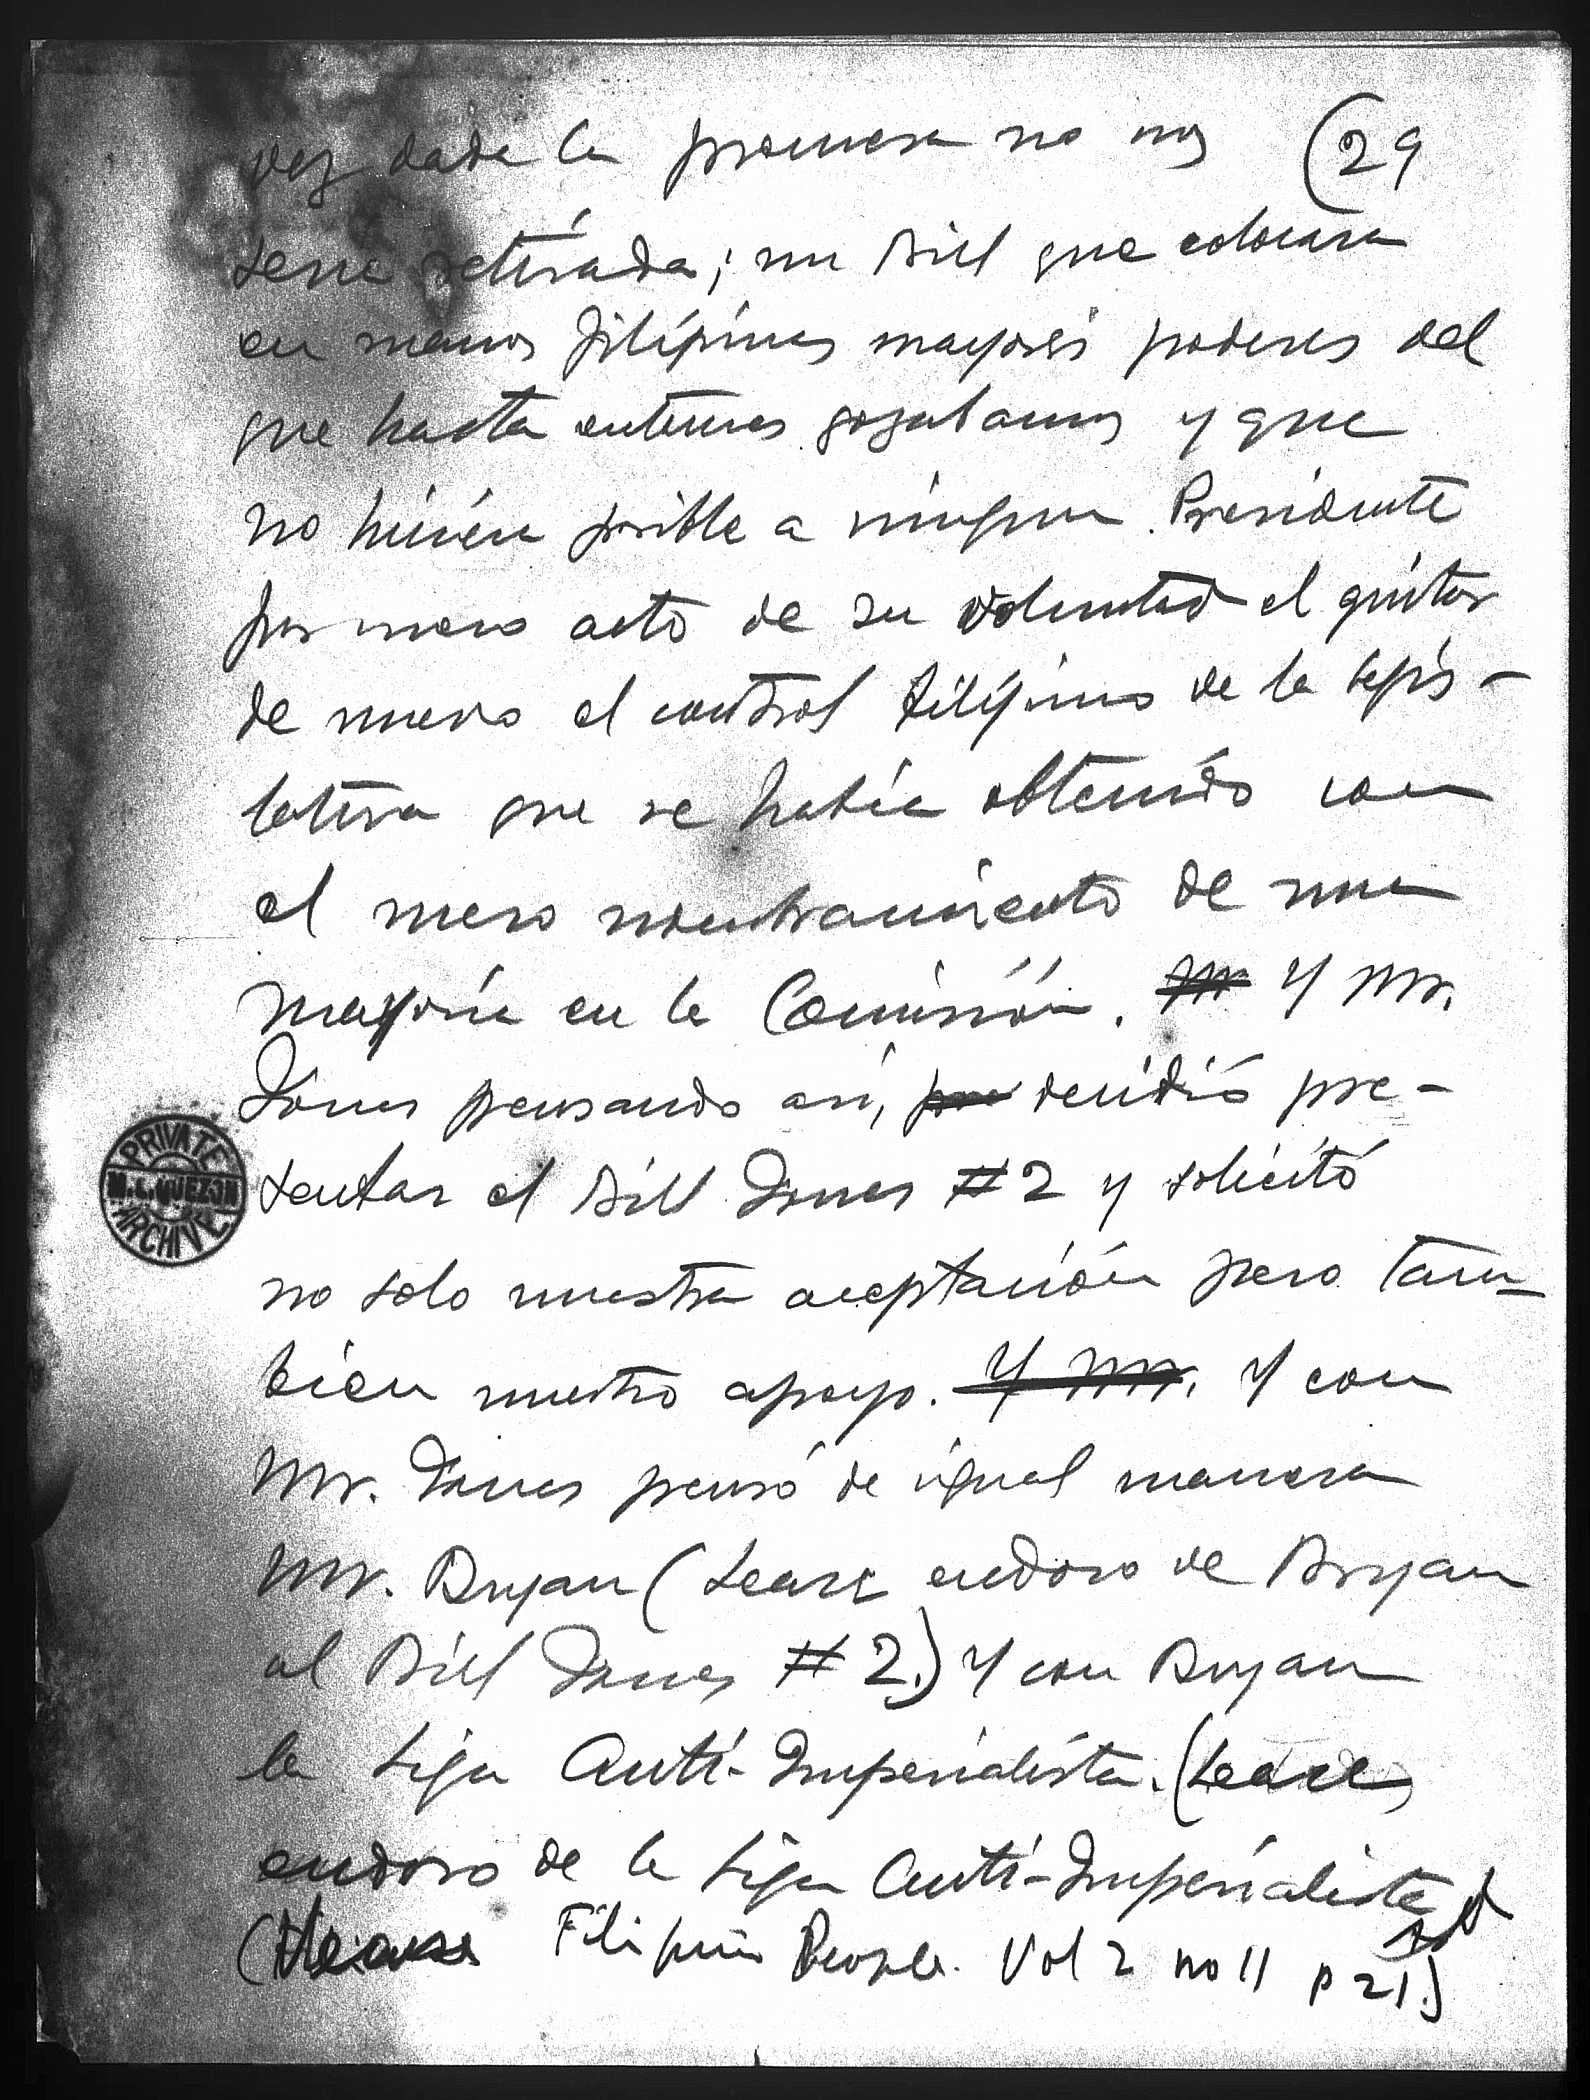 (29
vez dada la promesa no nos
sera retirada; un Bill que colocara
en manos filipinas mayores poderes del
que hasta entonces gozabamos y que
no hiciera posible a ningun Presidente
por mero acto de su voluntad el quitar
de nuevo el control filipino de la legis-
latura que se había obtenido con
el mero nombramiento de una
mayoria en la Comisión. Mr Y Mr.
Jones pensando asi, pre decidió pre-
sentar el Bill Jones #2 y solicitó
no solo nuestra aceptación pero tam-
bien nuestro apoyo. Y Mr. Y con
Mr. Jones pensó de igual manera
Mr. Bryan (Lease endoso de Bryan
al Bill Jones #2.) Y con Bryan
la Liga Anti-Imperialista. (Lease
endoso de la Liga Anti-Imperialista
(Lease Filipino People. Vol 2 no 11 p 21.)
PRIVATE
M.L.QUEZON
ARCHIVE